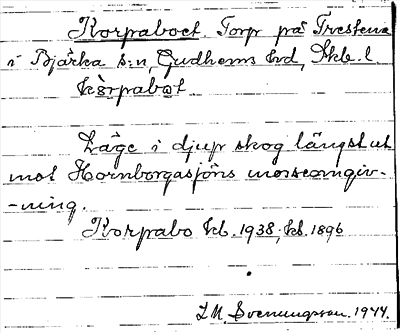 Korpaboet. Torp på Trestena
i Bjärka s:n, Gudhems hd, Skb. l.
kòrpabot.
Läge i djup skog längst ut
mot Hornborgasjöns mosseomgiv-
-ning.
Korpabo kb. 1938, kb. 1896
L M. Svenungsson. 1944.